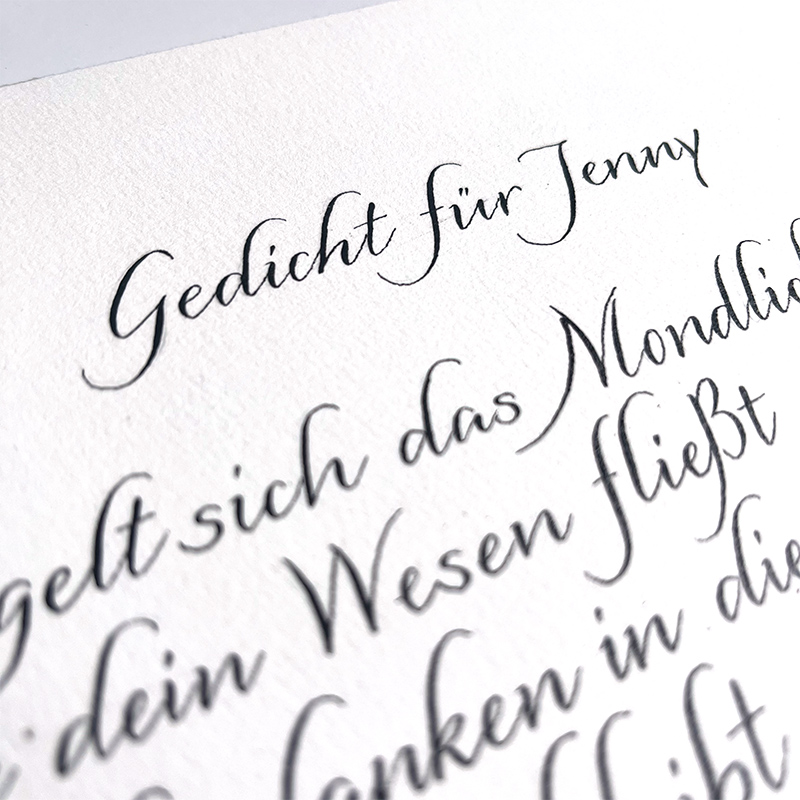 Gedicht für Jenny
gelt sich das Mondlic
dein Wesen fließt
anken in die
ibt